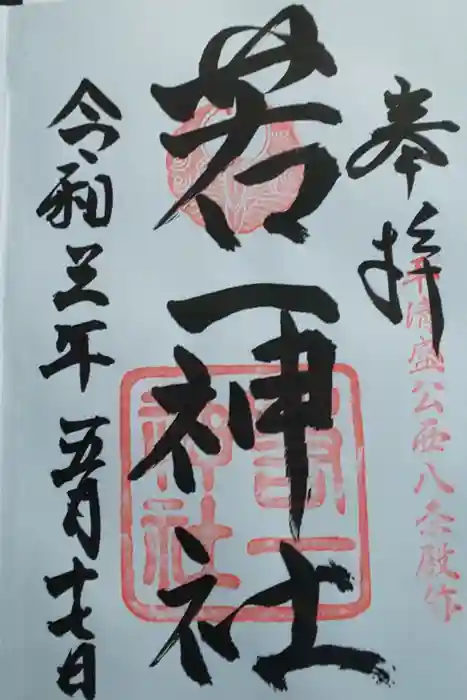 奉拝
平清盛公西八条殿作
若一神社
若一神社
令和三年五月十七日